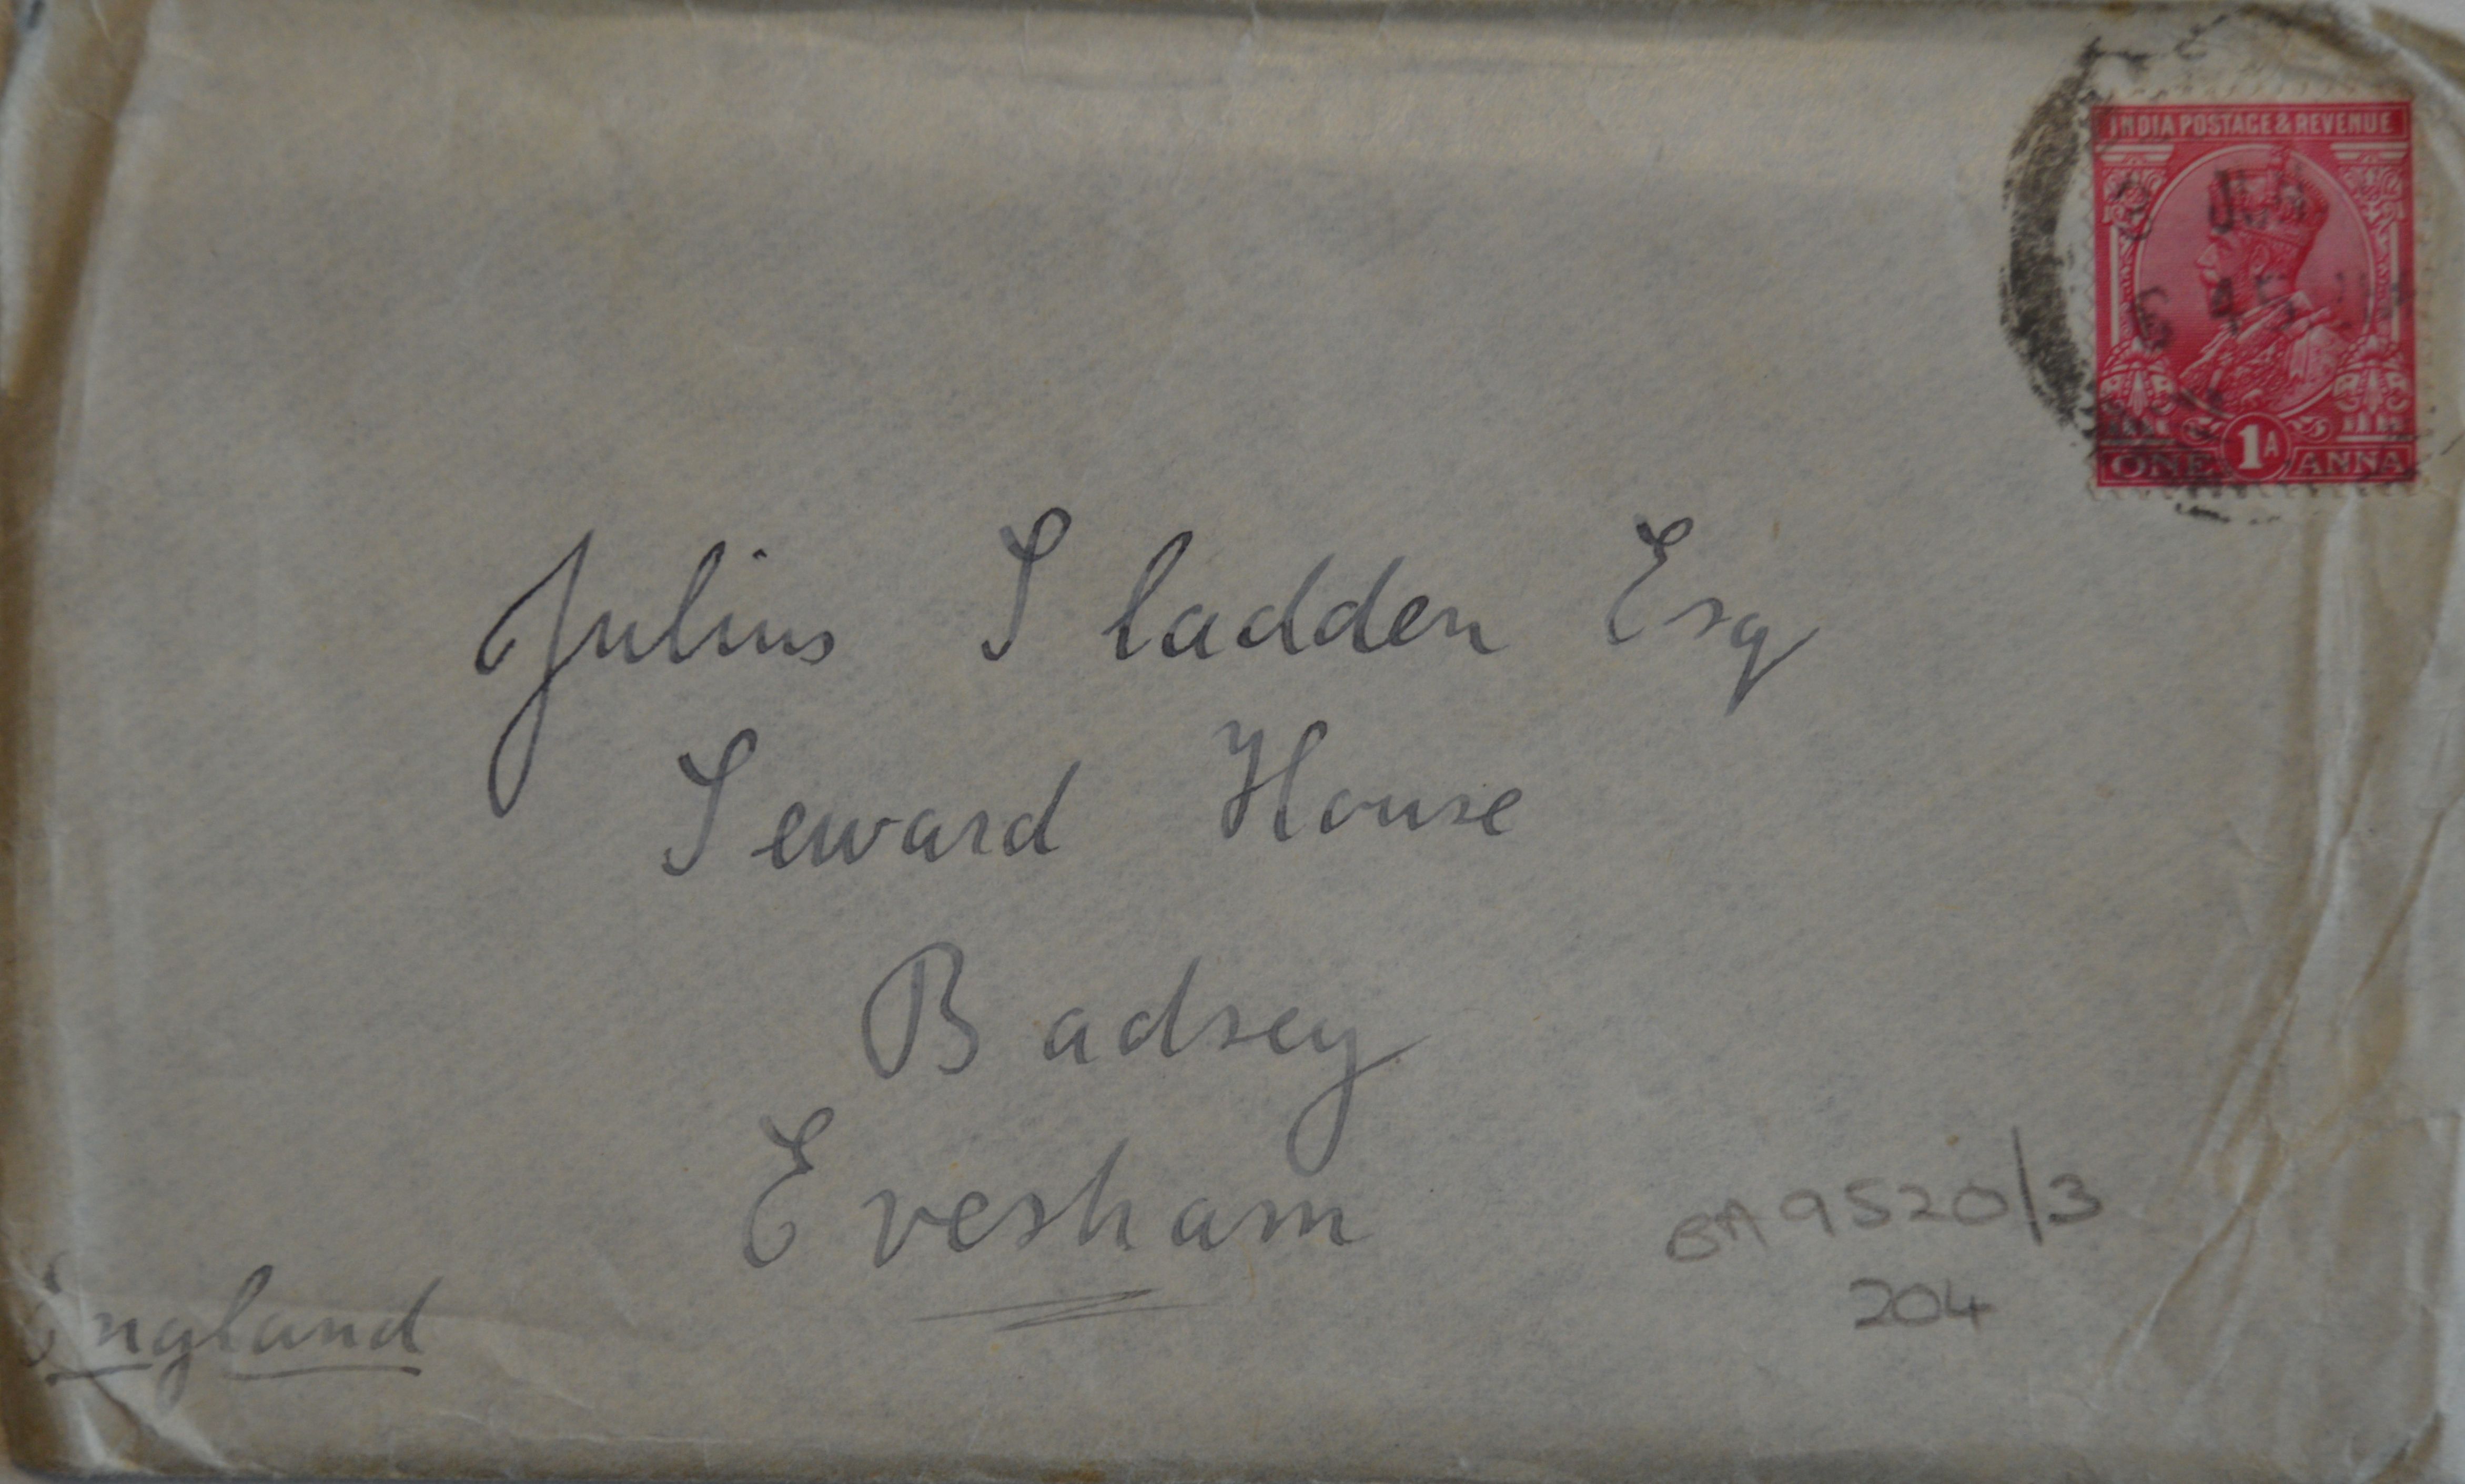 INDIA POSTAGE & REVENUE
3 JUN
6 45
1A
ONE ANNA
Julius Sladden Esq
Seward House
Badsey
Evesham
England
BA 9520/3
204